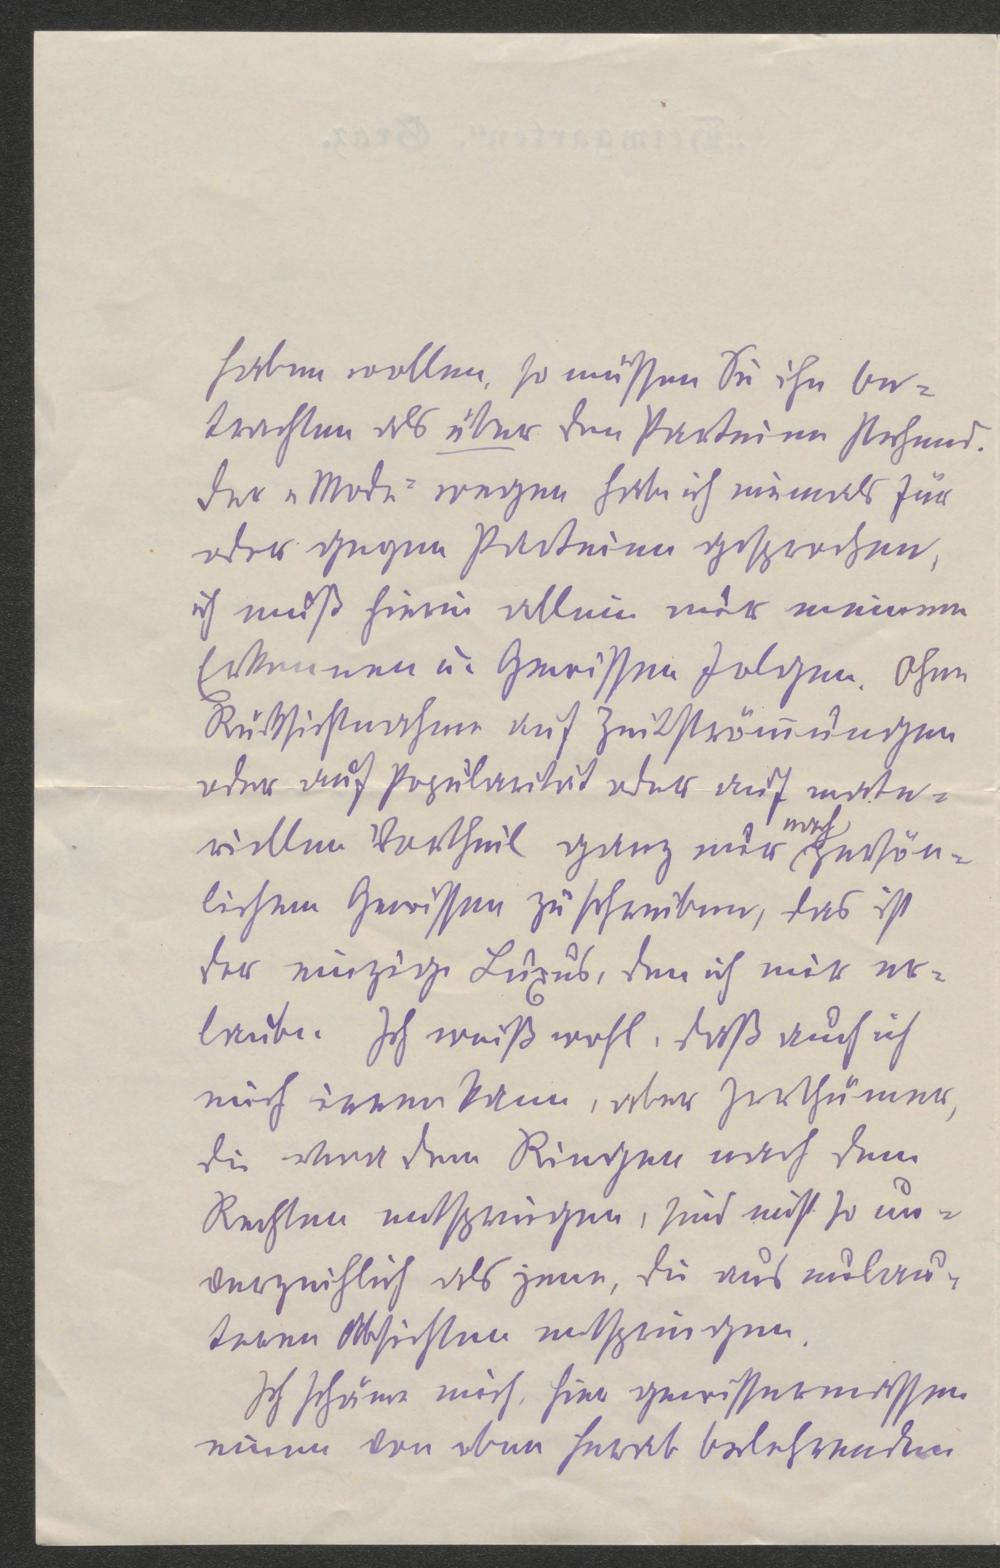 haben wollen, so müssen Sie ihn be-
trachten als über den Parteien stehend.
Der „Mode“ wegen habe ich niemals für
oder gegen Parteien gesprochen,
ich muß hierin allein nur meinem
Erkennen u. Gewissen folgen. Ohne
Rücksichtnahme auf Zeitströmungen
oder auf Popularität oder auf mate-
riellen Vortheil ganz nur nach persön-
lichem Gewissen zu schreiben, das ist
der einzige Luxus, den ich mir er-
laube. Ich weiß wohl, daß auch ich
mich irren kann, aber Irrthümer,
die dem Ringen nach dem
Rechten entspringen, sind nicht so un-
verzeihlich als jene, die aus unlau-
teren Absichten entspringen.
Ich schäme mich, hier gewissermassen
einen von oben herab belehrenden